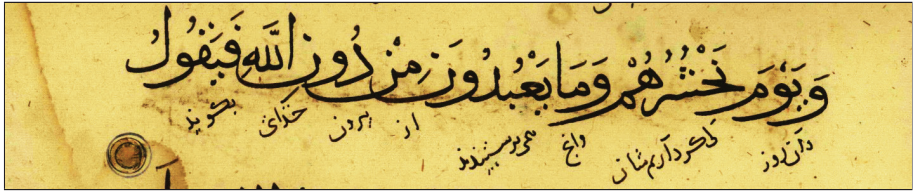 وَيَوْمَ نَحْشُرُهُمْ وَمَا يَعْبُدُونَ مِنْ دُونِ اللَّهِ فَيَقُولُ
وان روز کی کرد آریم شان وانج همی پرستیدند از بیرون خذای بکوید